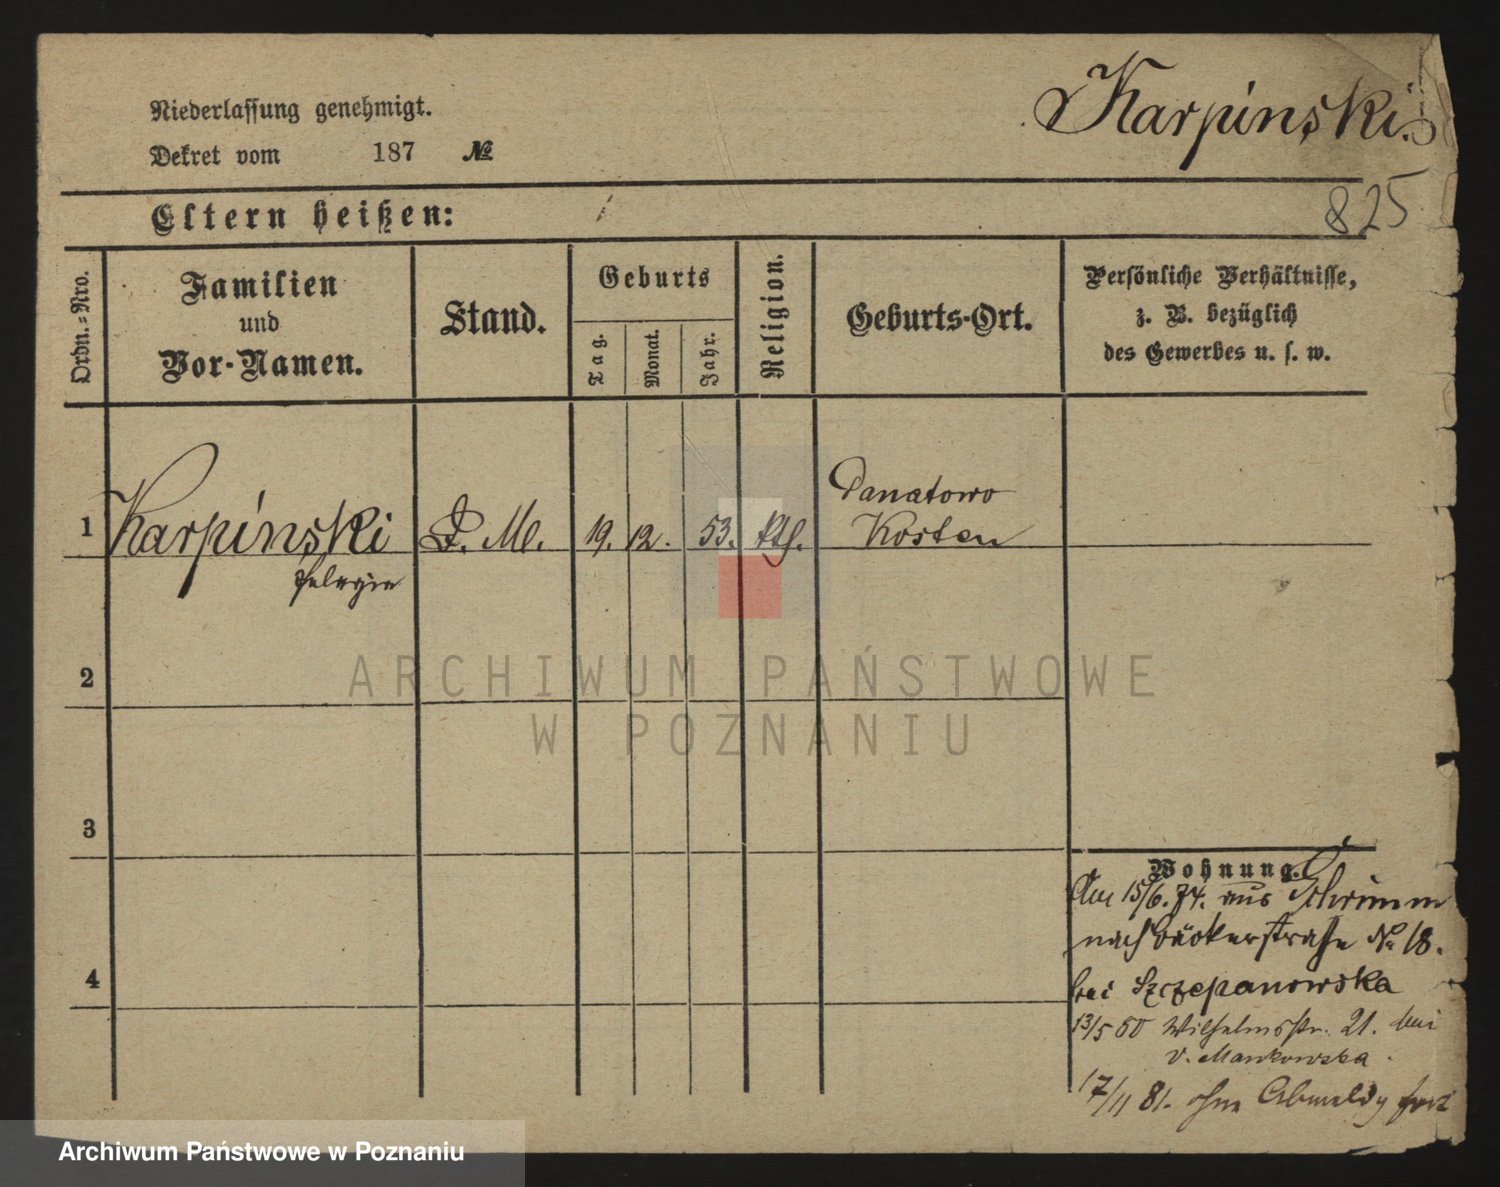 Niederlassung genehmigt.
Dekret vom 187 №
Karpinski.
825
Eltern heißen:
Ordn.-Nro.
Familien
und
Vor-Namen.
Stand.
Geburts
Tag.
Monat.
Jahr.
Religion.
Geburts-Ort.
Persönliche Verhältnisse,
z. B. bezüglich
des Gewerbes u. s. w.
1 Karpinski D. M. 19. 12. 53. kth. Danatowo
Kosten
Pelagia
2
3
4
Wohnung.
Am 15/6. 74. aus Schrimm
nach Bäckerstraße No 18.
bei Szczepanowska
13/5 80 Wilhelmsstr. 21. bei
v. Mankowska
17/11 81. ohne Abmeldg fort
ARCHIWUM PAŃSTWOWE
W POZNANIU
Archiwum Państwowe w Poznaniu